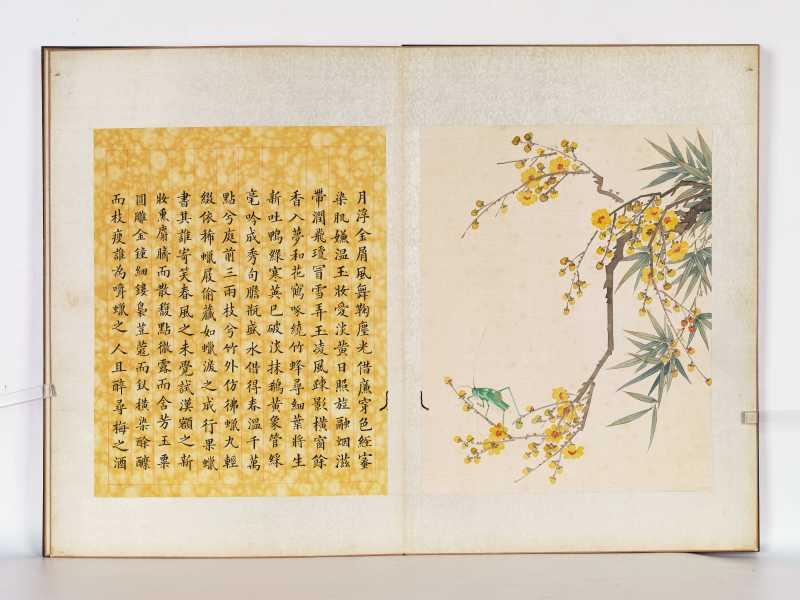 月浮金屑風舞鞠塵光借廉穿色經蜜
染肌嬚溫玉妝愛淡黄日照旌融烟滋
帶潤飛瓊冒雪弄玉凌風踈影橫窗餘
香入夢和花寫啄繞竹蜂尋細葉將生
新吐鴨綠寒英已破淡抹鵝黄象管綵
毫吟成秀句膽瓶盛水借得春溫千萬
點兮庭前三兩枝兮竹外仿彿蠟丸輕
綴依稀蠟屐偷藏如蠟淚之成行果蠟
書其誰寄笑春風之未覺試漢額之新
妝熏麝臍而散馥點微露而含芳玉栗
圓雕金鐘細鏤梟荳蔻而釵橫染酴醾
而枝瘦誰為嚼蠟之人且醉尋梅之酒